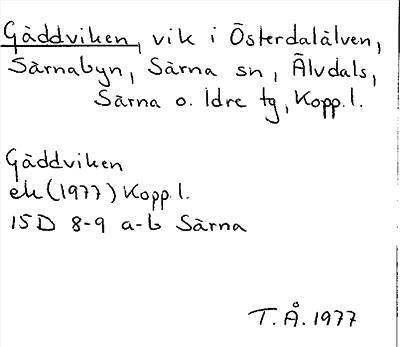 Gäddviken, vik i Österdalälven,
Särnabyn, Särna sn, Älvdals,
Särna o. Idre tg, Kopp. l.
Gäddviken
ek (1977) Kopp. l.
15D 8-9 a-b Särna
T. Å. 1977